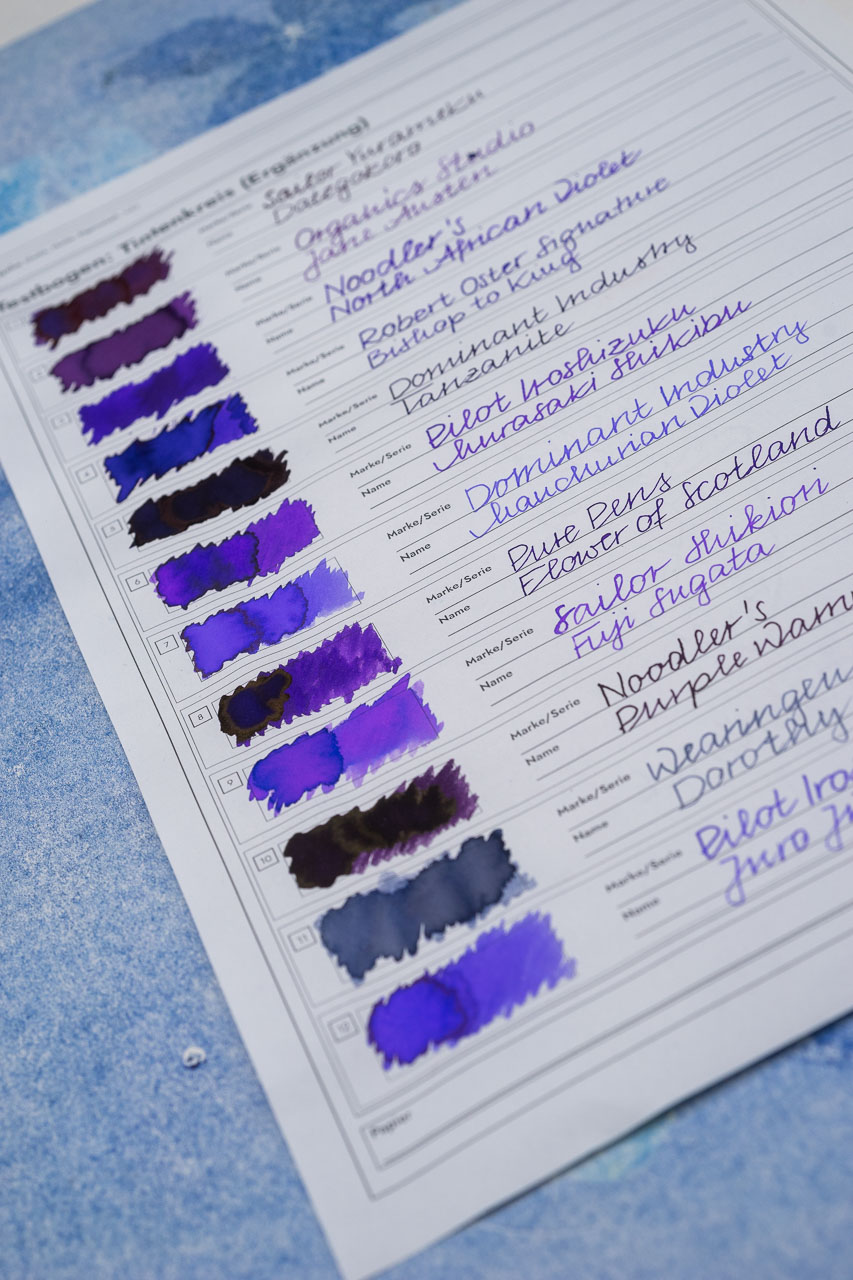 Testbogen: Tintenkreis (Ergänzung)
Marke/Serie Sailor Yurameku
Name Dategokoro
Marke/Serie Organics Studio
Name Jane Austen
Marke/Serie Noodler's
Name North African Violet
4
Marke/Serie Robert Oster Signature
Name Bishop to King
5
Marke/Serie Dominant Industry
Name Tanzanite
6
Marke/Serie Pilot Iroshizuku
Name Murasaki Shikibu
7
Marke/Serie Dominant Industry
Name Manchurian Violet
8
Marke/Serie Pure Pens
Name Flower of Scotland
9
Marke/Serie Sailor Shikiori
Name Fuji Sugata
10
Marke/Serie Noodler's
Name Purple
11
Marke/Serie
Name Dorothy
12
Marke/Serie Pilot
Name
Papier